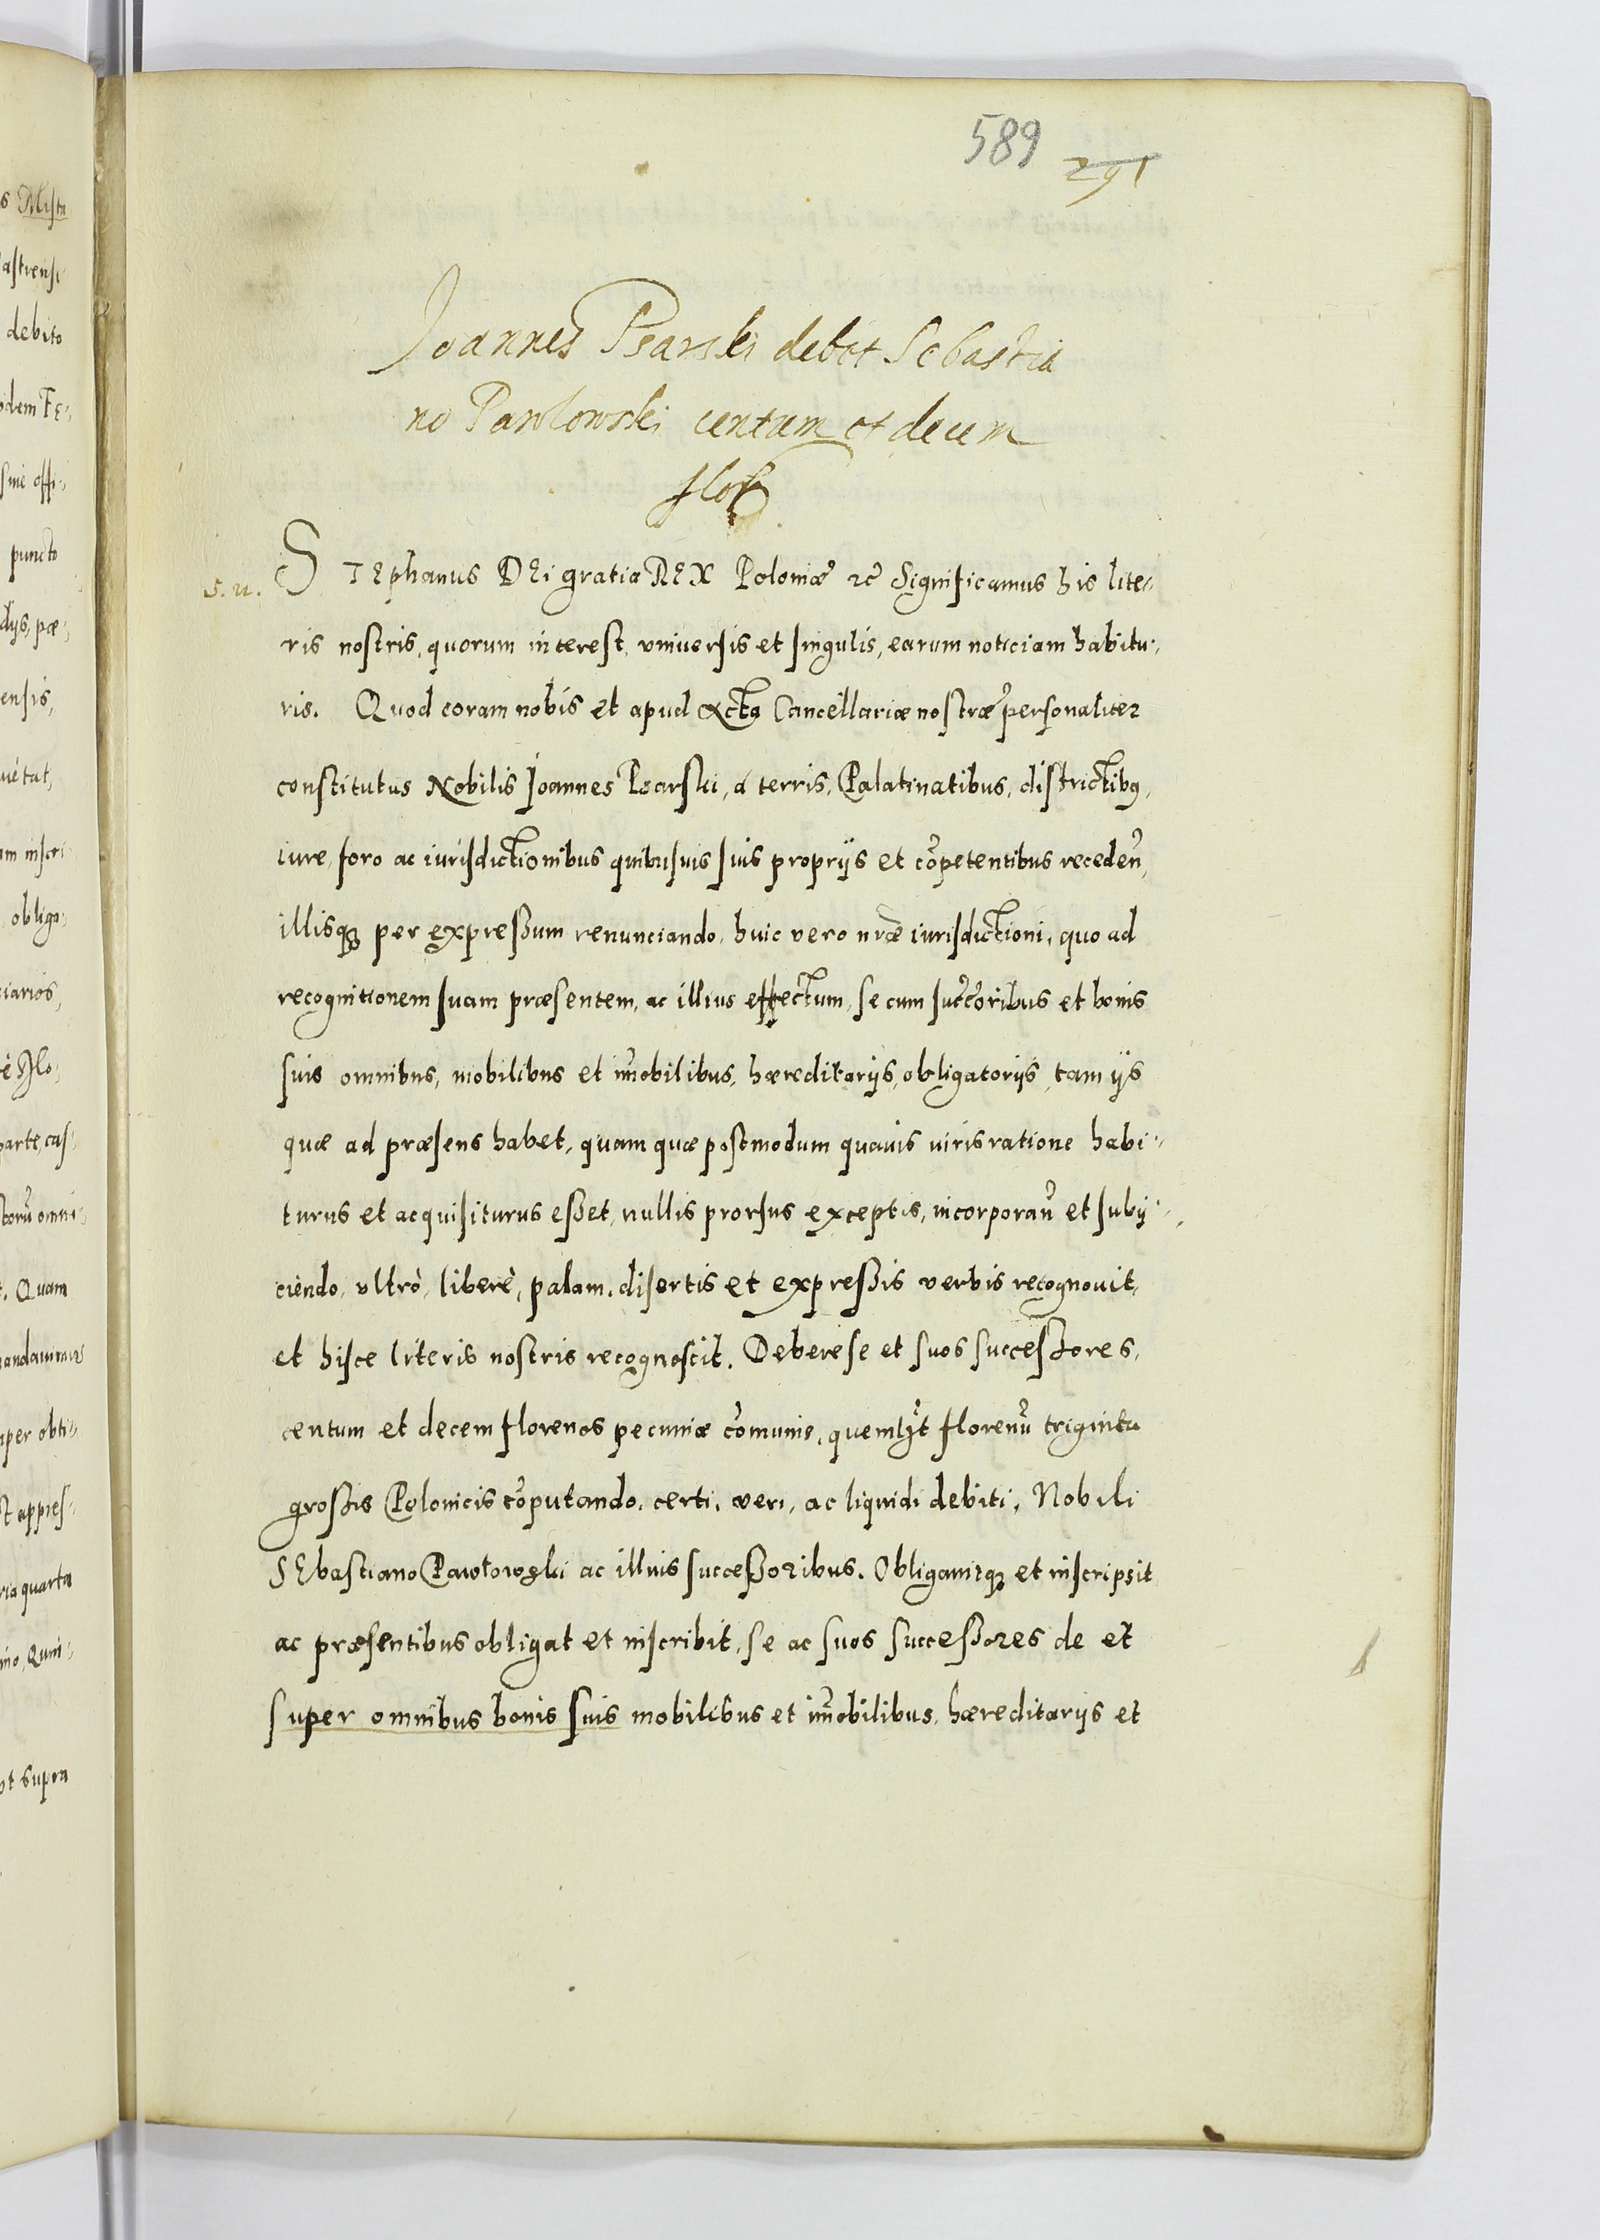 589
291
Joannes Psarski debet Sebastia
no Pawlowski centum et decem
flor
s. u.
STEphanus DEi gratia REX Poloniæ etc Significamus his lite-
ris nostris, quorum interest, vniuersis et singulis, earum noticiam habitu-
ris. Quod coram nobis et apud Acta Cancellariæ nostræ personaliter
constitutus Nobilis Joannes Psarski, á terris, Palatinatibus, districtibus,
iure, foro ac iurisdictionibus quibusuis suis proprijs et cõpetentibus receden̄,
illisq̃ per expreßum renunciando, huic vero nr̃æ iurisdictioni, quo ad
recognitionem suam præsentem, ac illius effectum, se cum succ̃oribus et bonis
suis omnibus, mobilibus et im̃obilibus, hæreditarijs, obligatorijs, tam ijs
quæ ad præsens habet, quam quæ postmodum quauis iuris ratione habi-
turus et acquisiturus eßet, nullis prorsus exceptis, incorporan̄ et subij-
ciendo, vltrò, liberè, palam, disertis et expreßis verbis recognouit,
et hisce literis nostris recognoscit. Debere se et suos succeßores,
centum et decem florenos pecuniæ com̃unis, quemlĩt florenũ triginta
großis Polonicis cõputando, certi, veri, ac liquidi debiti, Nobili
SEbastiano Pawłowski ac illius succeßoribus. Obligauitq̃ et inscripsit
ac præsentibus obligat et inscribit, se ac suos succeßores de et
super omnibus bonis suis mobilibus et im̃obilibus, hæreditarijs et